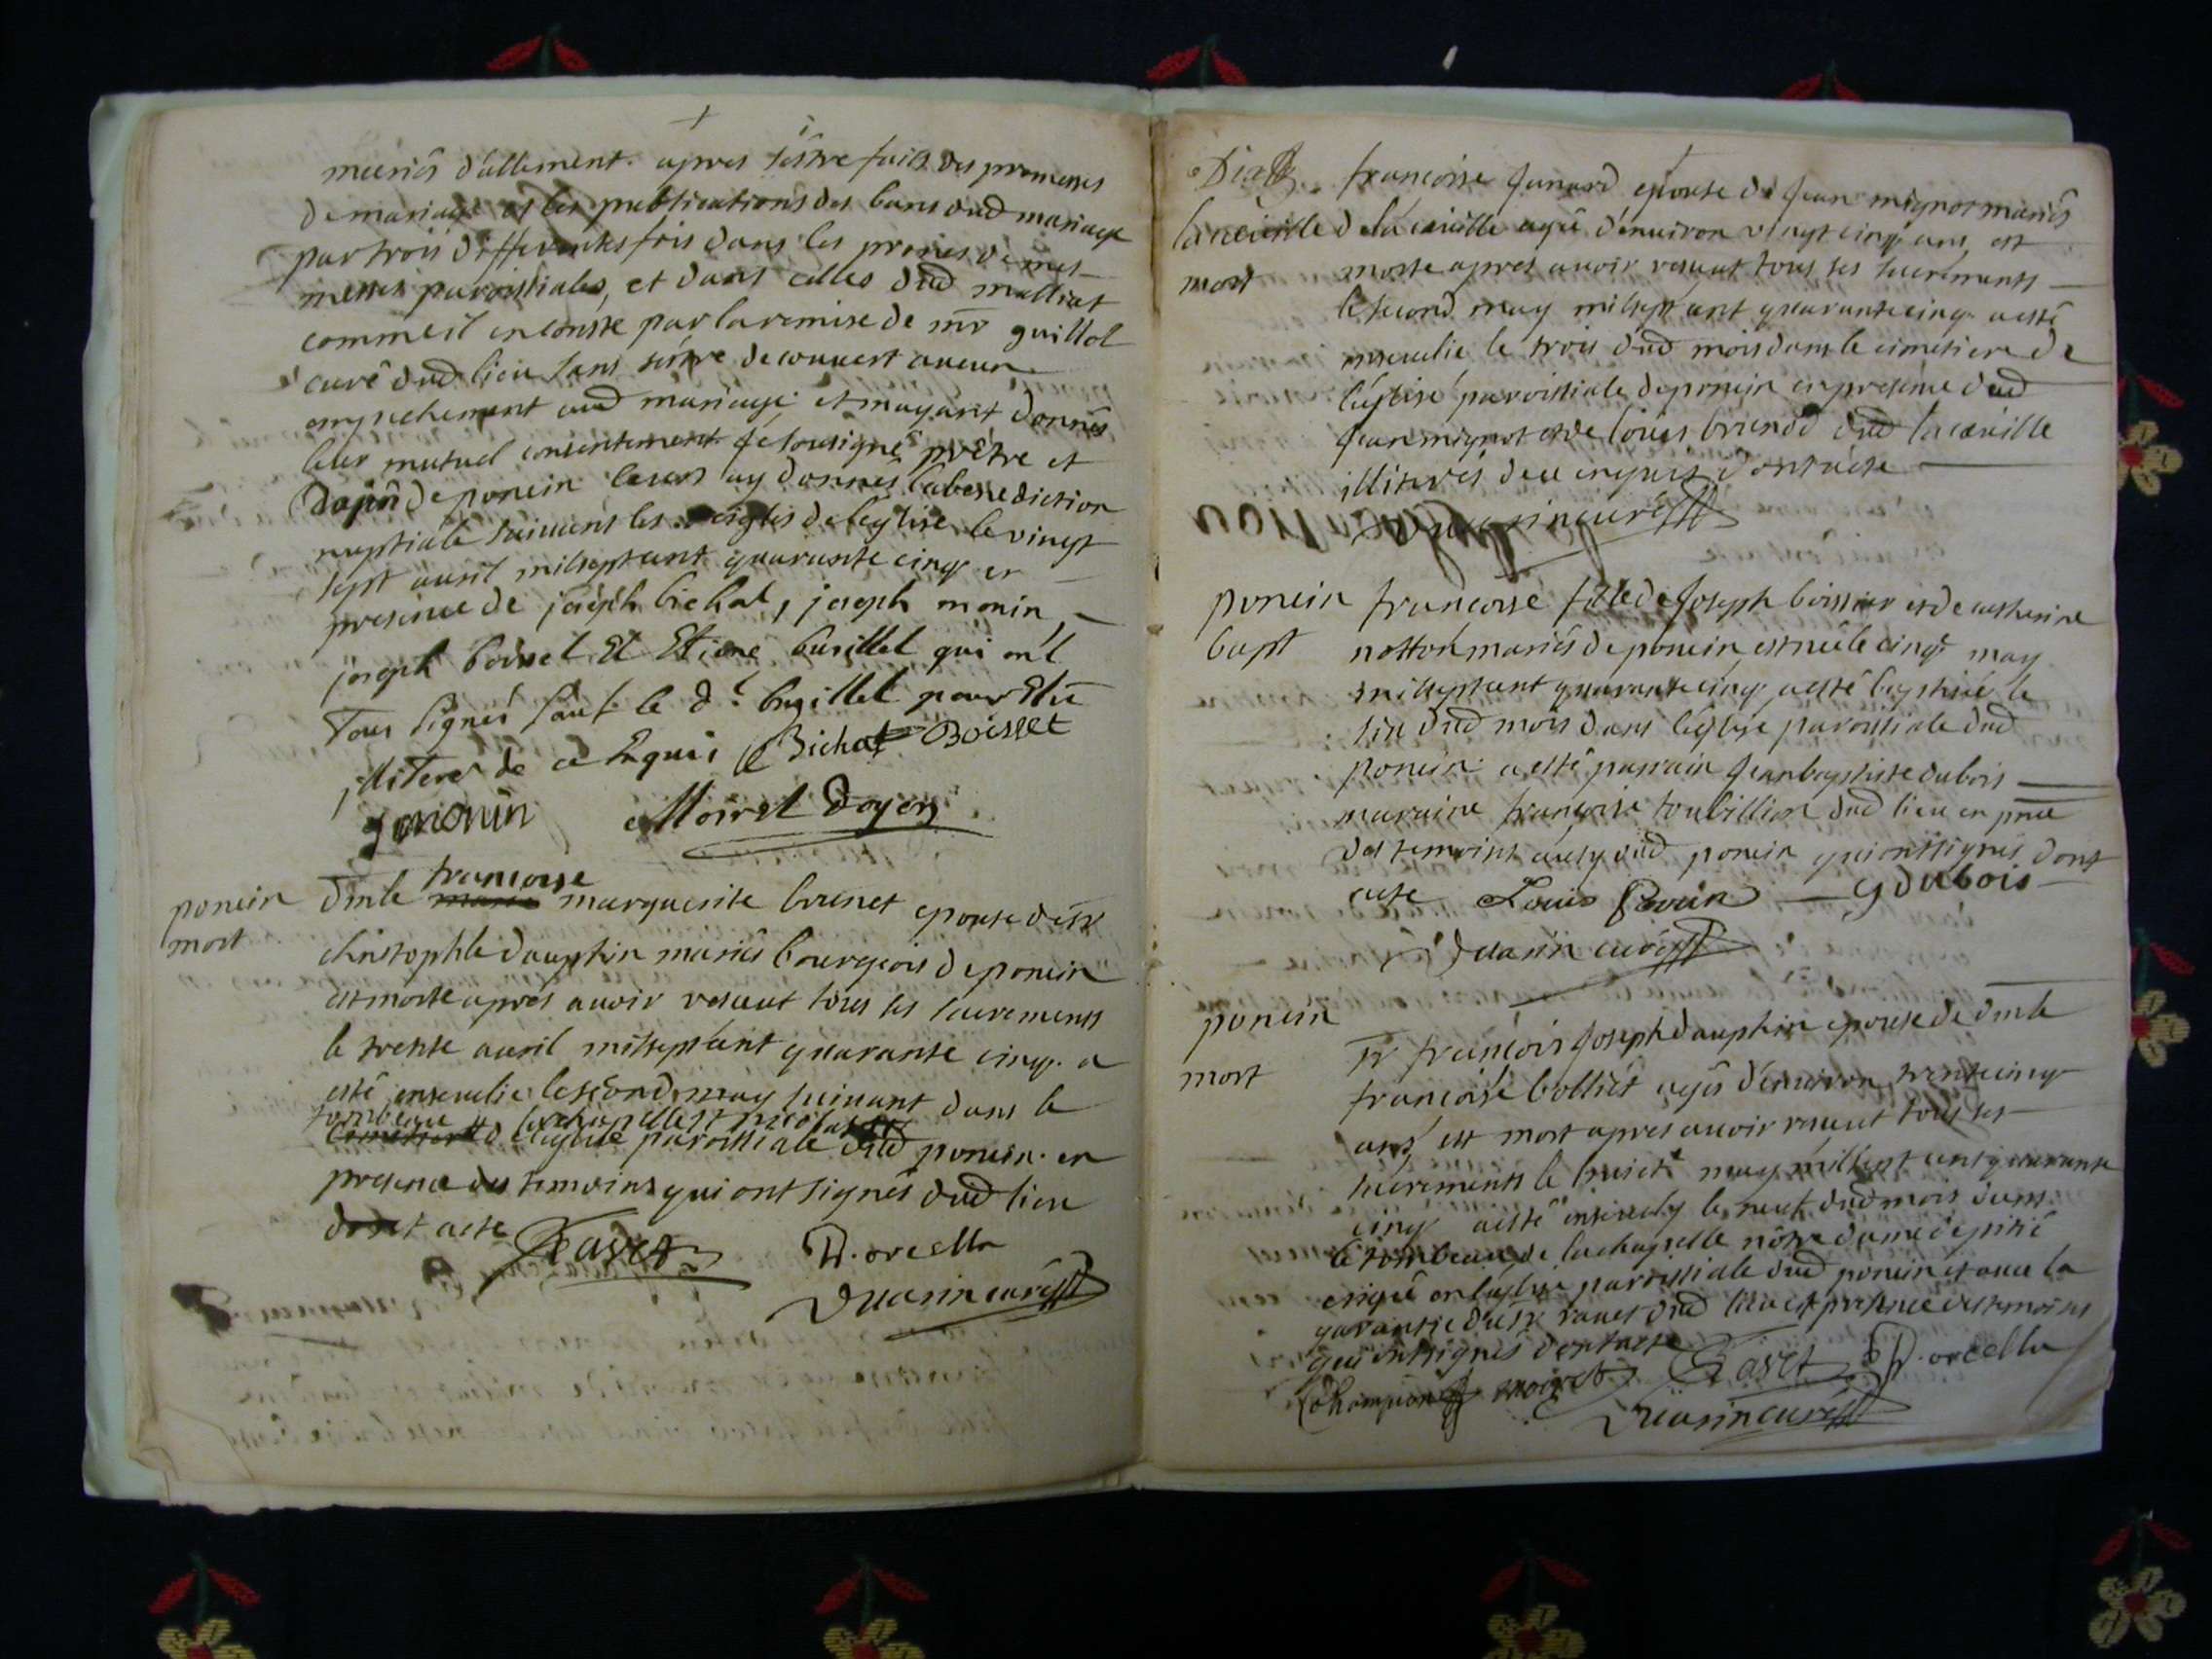 mariés d'allement. apres s'estre faits des promesses
de mariage et les publications des bans dud mariage
par trois differentes fois dans les prones de mes
messes paroissiales, et dans celles dud malliat
comme il en conste par la remise de mr guillot
curé dud lieu sans s'estre decouvert aucun
empechement aud mariage et m'ayant donnés
leur mutuel consentement je soussigné prêtre et
doyen de poncin leurs ay donnés la benediction
nuptiale suivant les reigles de leglise le vingt
sept avril mil sept cent quarante cinq en
presence de joseph bichat, joseph monin,
joseph boisset Et Etiene buillet qui ont
tous signés sauf le dt buillet pour Etre
illiteré de ce Enquis Bichat Boisset
j monin Moiret Doyen
poncin dmle francoise marguerite brunet epouse de sr
mort christophle dauphin mariés bourgeois de poncin
est morte aprés avoir receut tous ses sacrements
le trente avril mil sept cent quarante cinq. a
esté ensevelie le second may suivant dans le
tombeau de la chapelle st nicolas
de l'eglise paroissiale dud poncin. en
presence des temoins qui ont signés dud lieu
dont acte Ravet D. orcella
Duarin curé
francoise junard epouse de jean mignot mariés
la cueille de la cueille agée d'enuiron vingt cinq ans, est
mort morte apres auoir receut tous ses sacrements
le second may mil sept cent quarante cinq a esté
ensevelie le trois dud mois dans le cimetiere de
l'eglise paroissiale de poncin en presence dud
jean mignot et de loüis brunod dud la cueille
illiterés de ce enquis dont acte
Duarin curé
poncin francoise fille de joseph boissier et de catherine
bapt notton mariés de poncin, est née le cinq may
mil sept cent quarante cinq a esté baptisée le
six dud mois dans l'eglise paroissiale dud
poncin. a esté parrain jean baptiste dubois
maraine françoise toubillion dud lieu en pnce
des temoins aussy dud poncin qui ont signés dont
acte Louis Goüin G dubois
Duarin curé
poncin sr françois joseph dauphin epouse de dmle
mort francoise bolliet agés d'enuiron trente cinq
ans est mort apres auoir receut tous ses
sacrements le huict may mil sept cent quarante
cinq a esté ensevely le neuf dud mois dans
le tombeau de la chapelle nôtre dame de pitié
erigée en l'eglise paroissiale dud poncin et avec la
garantie du sr ravet dud lieu et presence des temoins
qui ont signés dont acte Ravet D. orcella
Champion moiret
Duarin curé